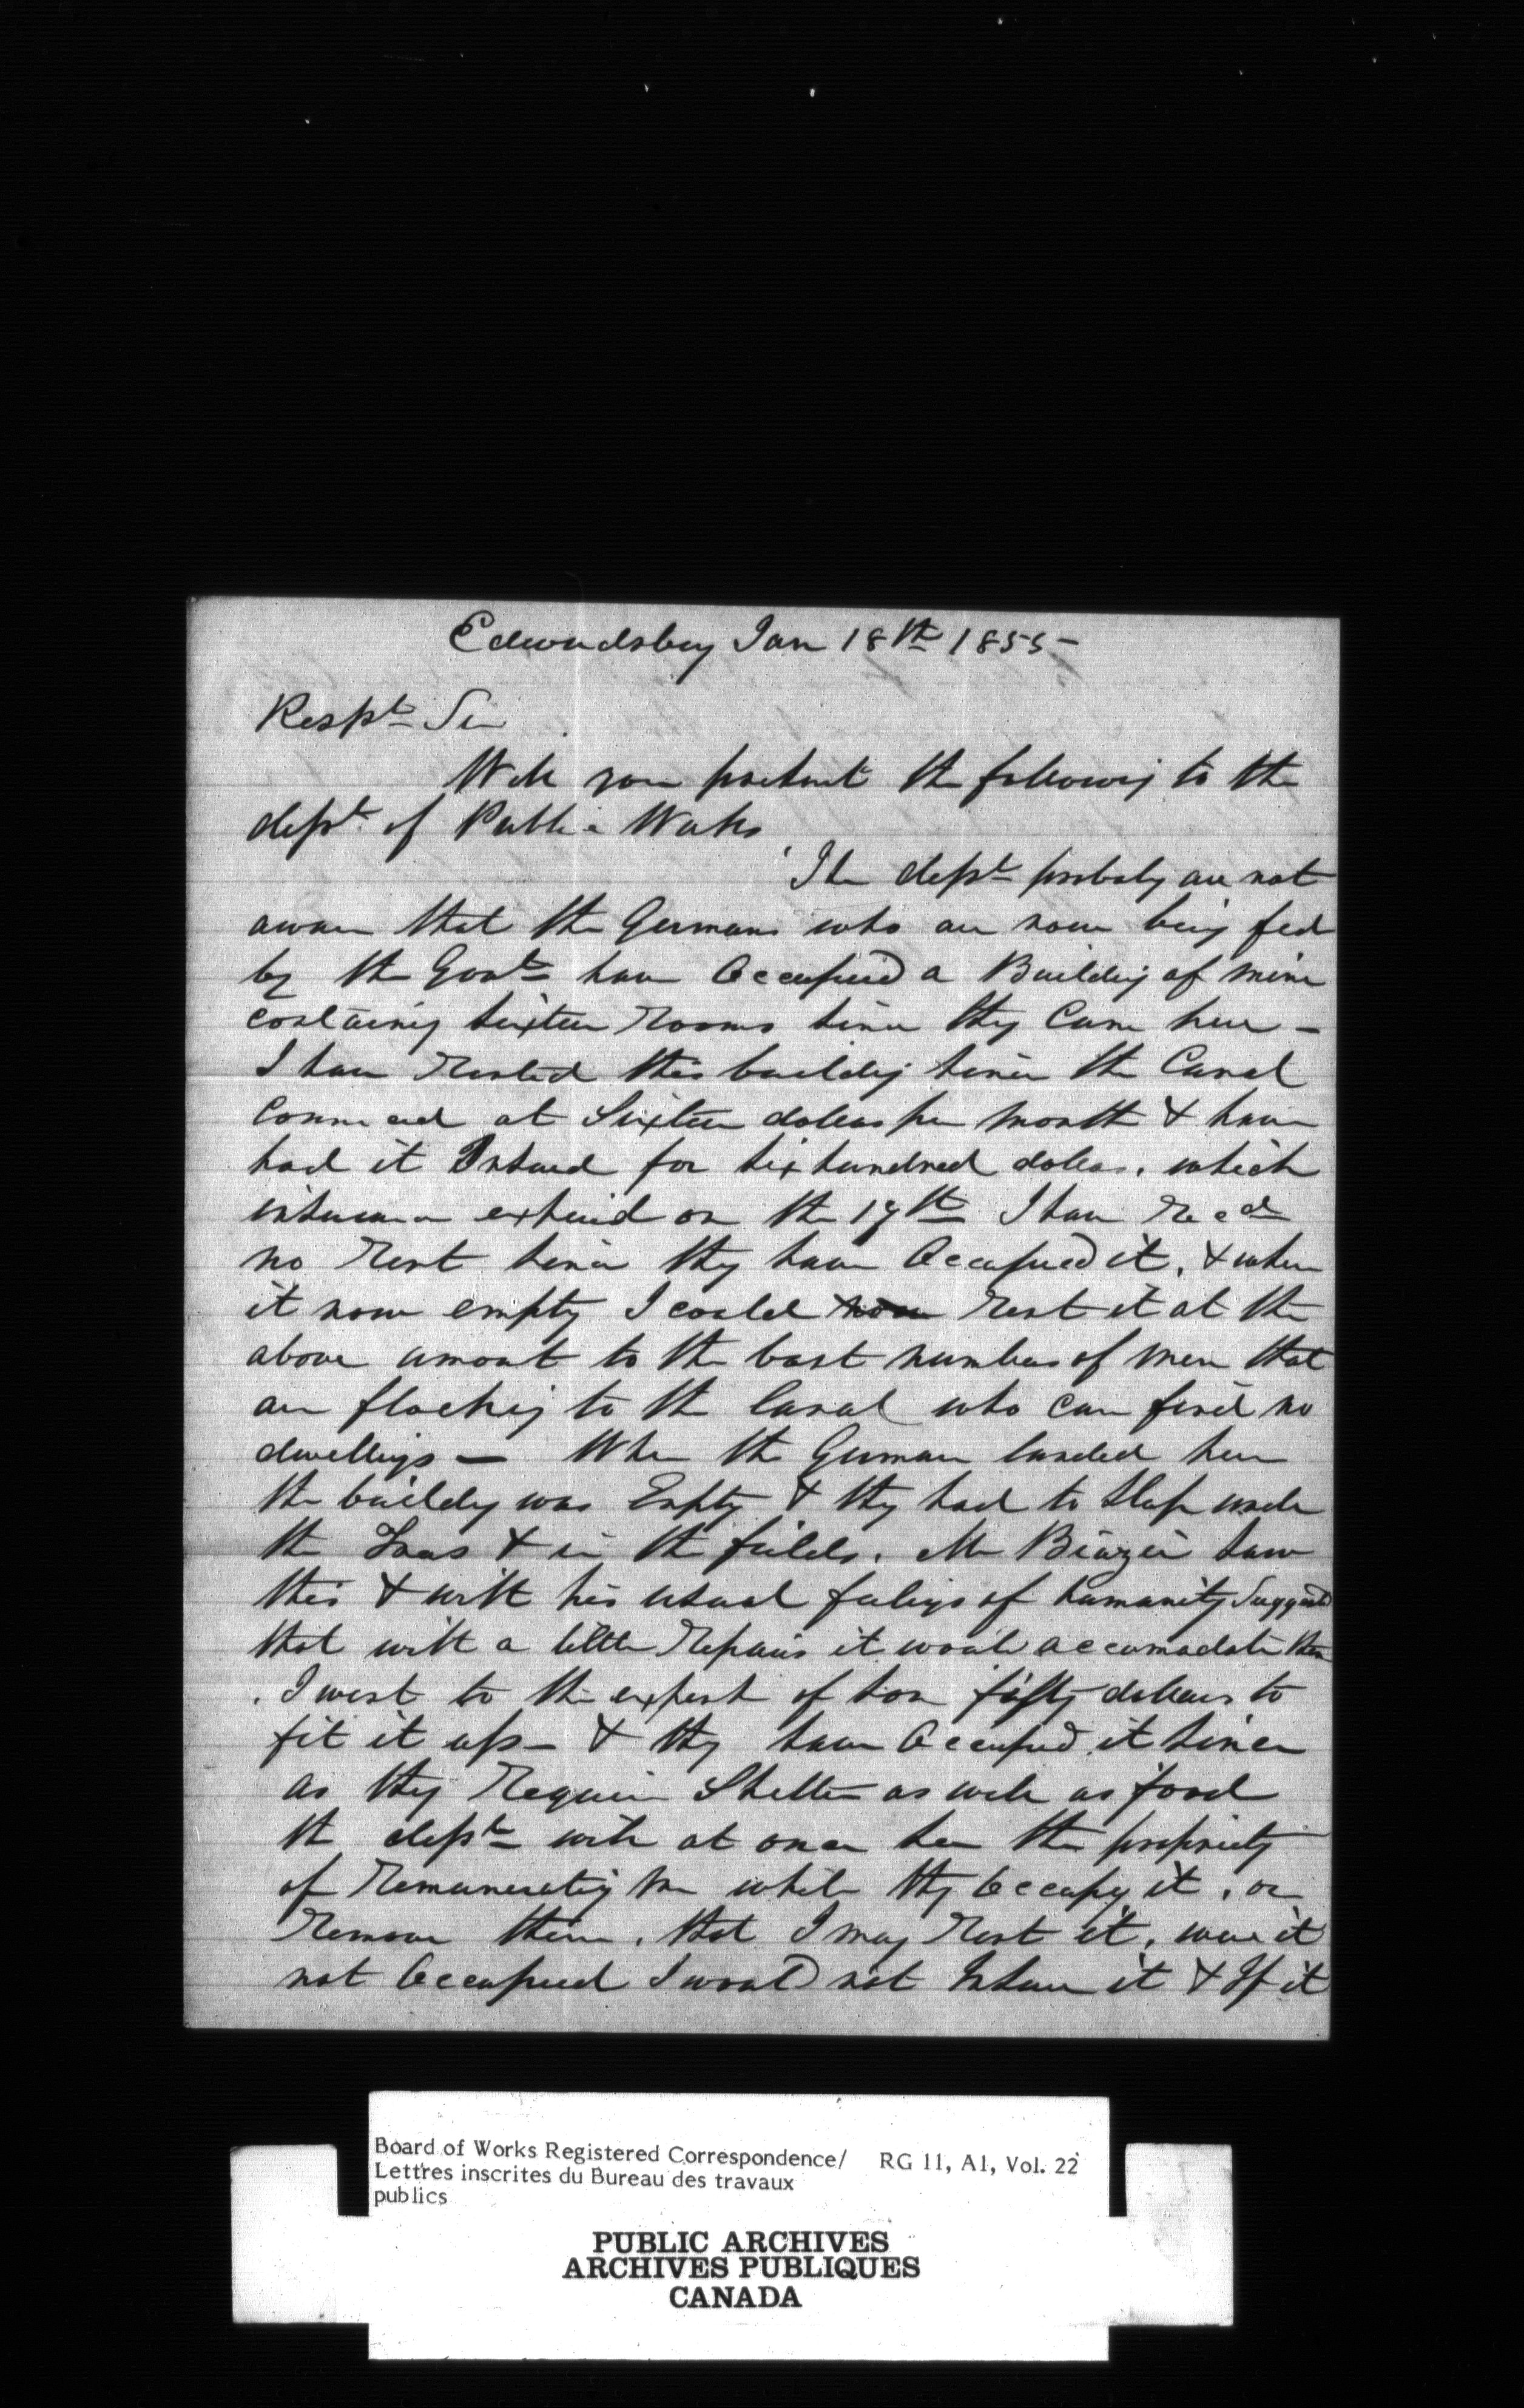 Edwardsburg Jan 18th 1855-
Respt Sir
Will you present the following to the
dept of Public Works
The dept probaly are not
aware that the Germans who are now being fed
by the Govt have Occupied a Building of mine
containing sixteen Rooms since they Came here -
I have Rented this building since the Canal
Commencd at Sixteen dollars per month & have
had it Insured for six hundred dollars. which
insurance expired on the 19th I have Recd
no Rent since they have Occupied it. & were
it now empty I could now Rent it at the
above amount to the vast numbers of men that
are flocking to the Canal who can find no
dwellings - When the German landed here
the building was Empty & they had to sleep under
the Trees & in the fields. Mr saw
this & with his usual feelings of humanity Suggested
that with a little Repairs it would accomodate them
. I went to the expense of some fifty dollars to
fit it up - & they have Occupied it since
as they Require Shelter as well as food
the dept will at once see the propriety
of Remunerating me while they Occupy it. or
Remove them. that I may Rent it. were it
not Occupied I would not Insure it & If it
Board of Works Registered Correspondence/ RG 11, A1, Vol. 22
Lettres inscrites du Bureau des travaux
publics
PUBLIC ARCHIVES
ARCHIVES PUBLIQUES
CANADA